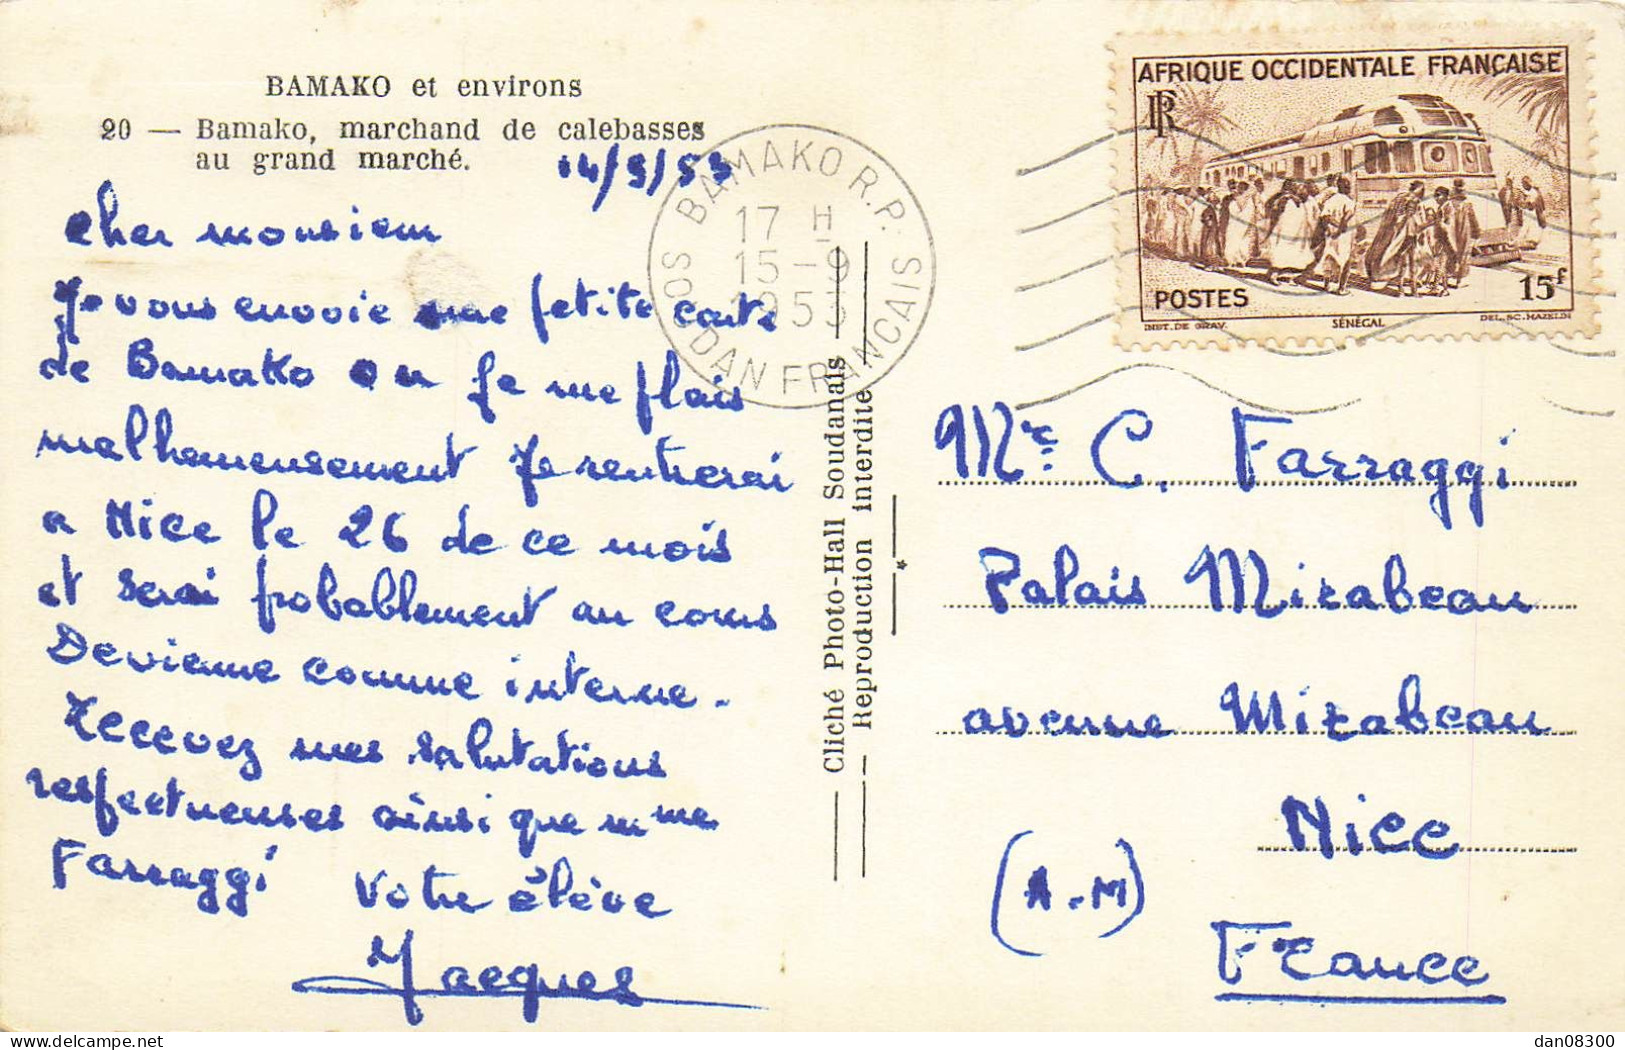 BAMAKO et environs
20 — Bamako, marchand de calebasses
au grand marché.
14/9/53
Cher monsieur
Je vous envoie une petite carte
de Bamako ou je me plais
malheureusement Je rentrerai
a Nice le 26 de ce mois
et serai probablement au cours
Devienne comme interne.
Recevez mes salutations
respectueuses ainsi que mme
Farraggi Votre élève
Jacques
BAMAKO R.P.
17 H
15-9
1953
SOUDAN FRANCAIS
Cliché Photo-Hall Soudanais
Reproduction interdite
AFRIQUE OCCIDENTALE FRANÇAISE
RF
POSTES
15f
INST. DE GRAV.
SÉNÉGAL
DEL. SC. HAZELIN
Mr C. Farraggi
Palais Mirabeau
avenue Mirabeau
Nice
(A.-M)
France
dan08300